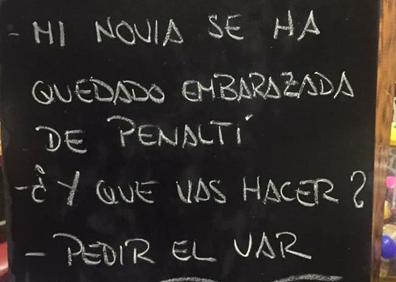 - MI NOVIA SE HA
QUEDADO EMBARAZADA
DE PENALTÍ
-¿Y QUE VAS HACER?
- PEDIR EL VAR